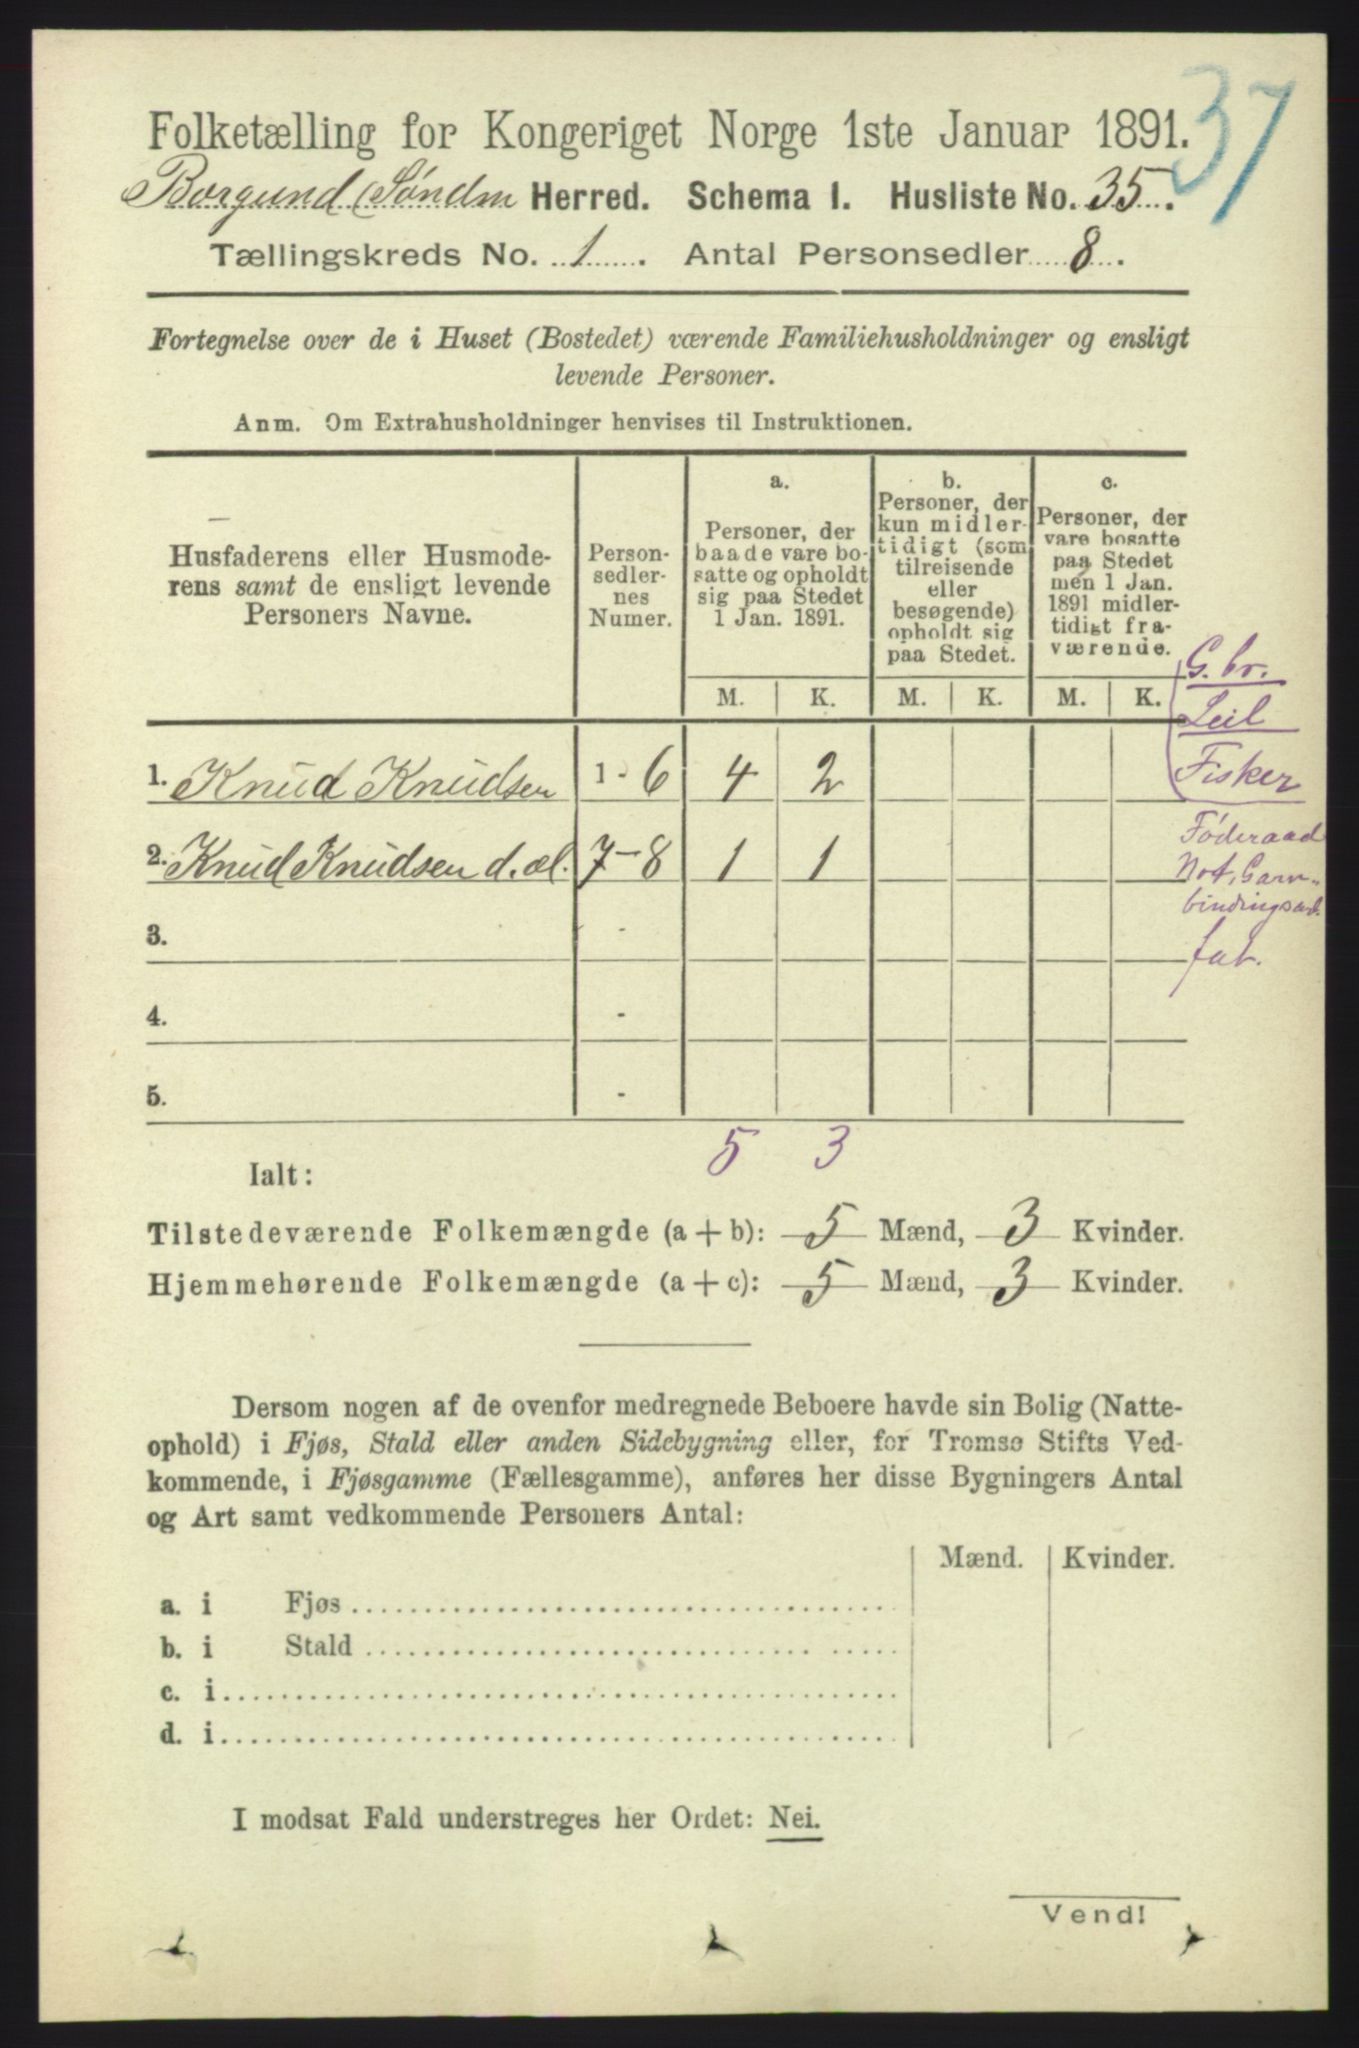 37
Folketælling for Kongeriget Norge 1ste Januar 1891.
Borgund (Søndm Herred. Schema I. Husliste No. 35.
Tællingskreds No. 1. Antal Personsedler 8.
Fortegnelse over de i Huset (Bostedet) værende Familiehusholdninger og ensligt
levende Personer.
Anm. Om Extrahusholdninger henvises til Instruktionen.
Husfaderens eller Husmode-
rens samt de ensligt levende
Personers Navne.
Person-
sedler-
nes
Numer.
a.
Personer, der
baade vare bo-
satte og opholdt
sig paa Stedet
1 Jan. 1891.
b.
Personer, der
kun midler-
tidigt (som
tilreisende
eller
besøgende)
opholdt sig
paa Stedet.
c.
Personer, der
vare bosatte
paa Stedet
men 1 Jan.
1891 midler-
tidigt fra-
værende.
M. K. M. K. M. K.
G. br.
Leil
Fisker
1. Knud Knudsen 1 - 6 4 2
2. Knud Knudsen d. æl. 7-8 1 1
Føderaad
Not, Garn-
bindingsarb.
fat.
3. -
4. -
5. -
5 3
Ialt:
Tilstedeværende Folkemængde (a + b): 5 Mænd, 3 Kvinder.
Hjemmehørende Folkemængde (a + c): 5 Mænd, 3 Kvinder.
Dersom nogen af de ovenfor medregnede Beboere havde sin Bolig (Natte-
ophold) i Fjøs, Stald eller anden Sidebygning eller, for Tromsø Stifts Ved-
kommende, i Fjøsgamme (Fællesgamme), anføres her disse Bygningers Antal
og Art samt vedkommende Personers Antal:
Mænd. Kvinder.
a. i Fjøs
b. i Stald
c. i
d. i
I modsat Fald understreges her Ordet: Nei.
Vend!